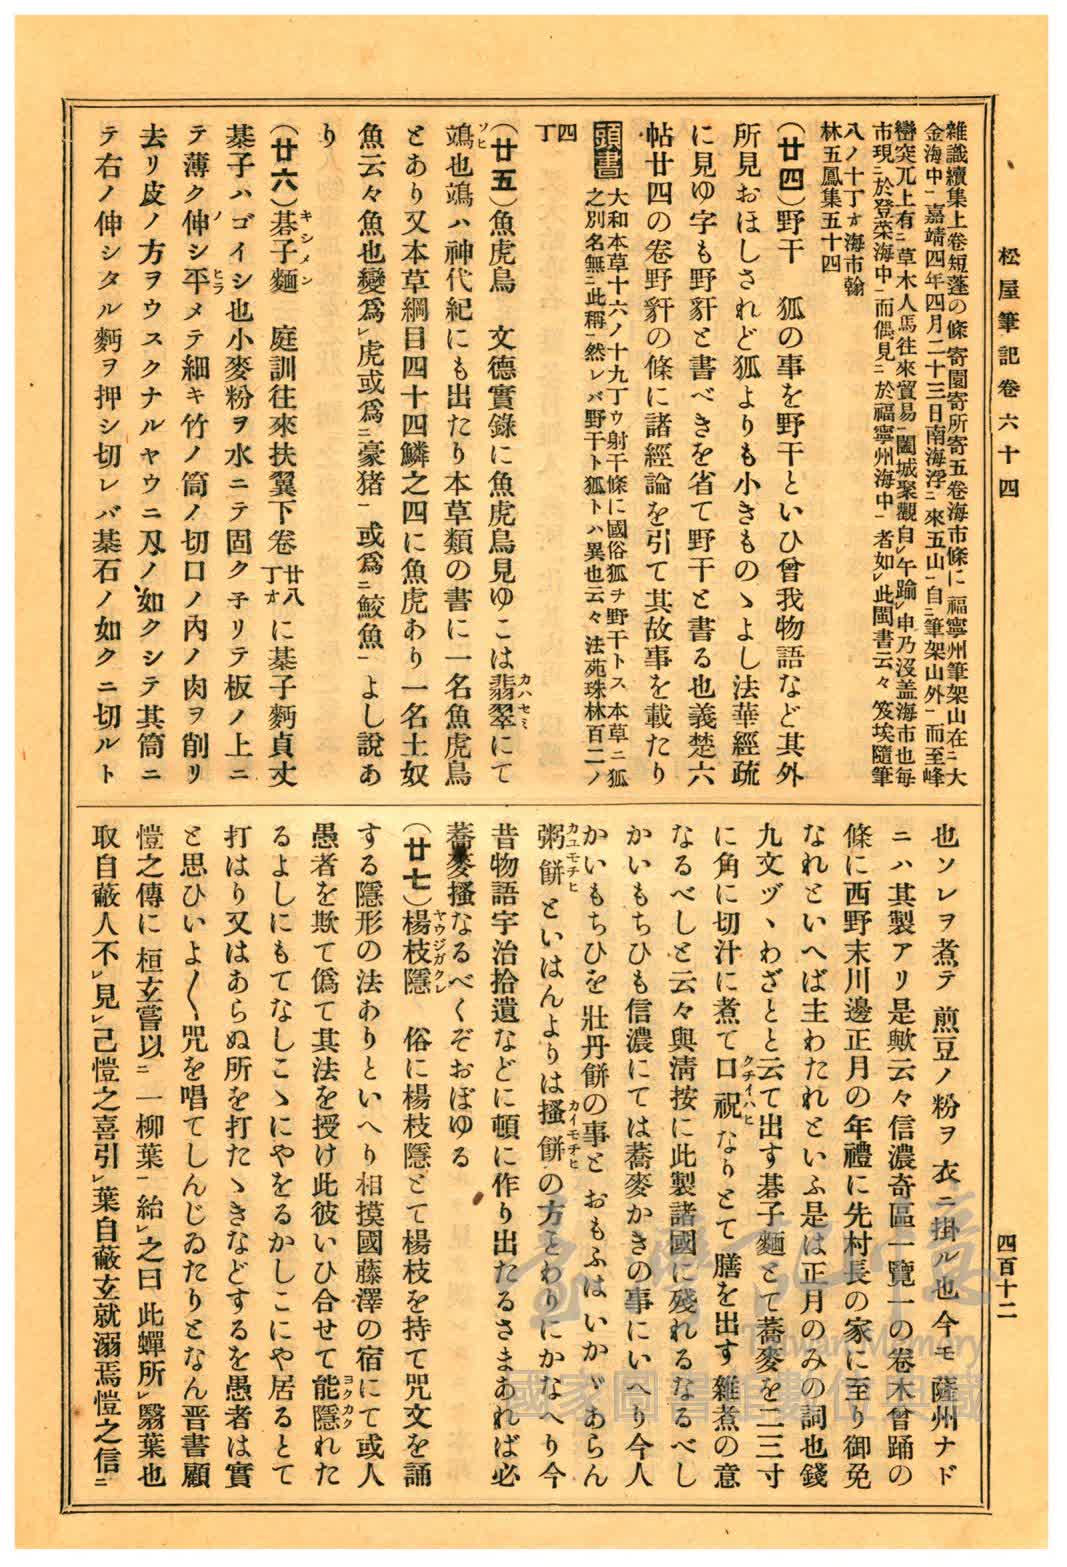 松屋筆記卷六十四
四百十二
雜識續集上卷短蓬の條寄園寄所寄五卷海市條に福寧州筆架山在ニ大
金海中一嘉靖四年四月二十三日南海浮ニ來五山一自ニ筆架山外一而至峰
巒突兀上有ニ草木人馬往來貿易一闔城聚觀自レ午踰レ申乃沒盖海市也每
市現ニ於登萊海中一而偶見ニ於福寧州海中一者如レ此閩書云々笈埃隨筆
八ノ十丁オ海市翰
林五鳳集五十四
(廿四)野干　狐の事を野干といひ曾我物語など其外
所見おほしされど狐よりも小きものゝよし法華經疏
に見ゆ字も野豻と書べきを省て野干と書る也義楚六
帖廿四の卷野豻の條に諸經論を引て其故事を載たり
頭書 大和本草十六ノ十九丁ウ射干條に國俗狐ヲ野干トス本草ニ狐
之別名無ニ此稱一然レバ野干ト狐トハ異也云々法苑珠林百二ノ
四
丁
(廿五)魚虎鳥　文德實錄に魚虎鳥見ゆこは翡翠カハセミにて
鴗ソヒ也鴗ハ神代紀にも出たり本草類の書に一名魚虎鳥
とあり又本草綱目四十四鱗之四に魚虎あり一名土奴
魚云々魚也變爲レ虎或爲ニ豪猪一或爲ニ鮫魚一よし說あ
り
(廿六)碁子麵キシメン　庭訓往來扶翼下卷廿八丁オに棊子麪貞丈
棊子ハゴイシ也小麥粉ヲ水ニテ固ク子リテ板ノ上ニ
テ薄ク伸ノシ平ヒラメテ細キ竹ノ筒ノ切口ノ內ノ肉ヲ削リ
去リ皮ノ方ヲウスクナルヤウニ刄ノ如クシテ其筒ニ
テ右ノ伸シタル麪ヲ押シ切レバ棊石ノ如クニ切ルト
也ソレヲ煮テ煎豆ノ粉ヲ衣ニ掛ル也今モ薩州ナド
ニハ其製アリ是歟云々信濃奇區一覽一の卷木曾踊の
條に西野末川邊正月の年禮に先村長の家に至り御免
なれといへば主わたれといふ是は正月のみの詞也錢
九文ヅヽわざとと云て出す碁子麵とて蕎麥を二三寸
に角に切汁に煮て口祝クチイハヒなりとて膳を出す雜煮の意
なるべしと云々與淸按に此製諸國に殘れるなるべし
かいもちひも信濃にては蕎麥かきの事にいへり今人
かいもちひを壯丹餠の事とおもふはいかゞあらん
粥餠カユモチヒといはんよりは搔餠カイモチヒの方とわりにかなへり今
昔物語宇治拾遺などに頓に作り出たるさまあれば必
蕎麥搔なるべくぞおぼゆる
(廿七)楊枝隱ヤウジガクレ　俗に楊枝隱とて楊枝を持て咒文を誦
する隱形の法ありといへり相摸國藤澤の宿にて或人
愚者を欺て僞て其法を授け此彼いひ合せて能隱ヨクカクれた
るよしにもてなしこゝにやをるかしこにや居るとて
打はり又はあらぬ所を打たゝきなどするを愚者は實
と思ひいよ〱咒を唱てしんじゐたりとなん晋書顧
愷之傳に桓玄嘗以ニ一柳葉一紿レ之曰此蟬所レ翳葉也
取自蔽人不レ見レ己愷之喜引レ葉自蔽玄就溺焉愷之信ニ
臺灣記憶
Taiwan Memory
國家圖書館數位典藏